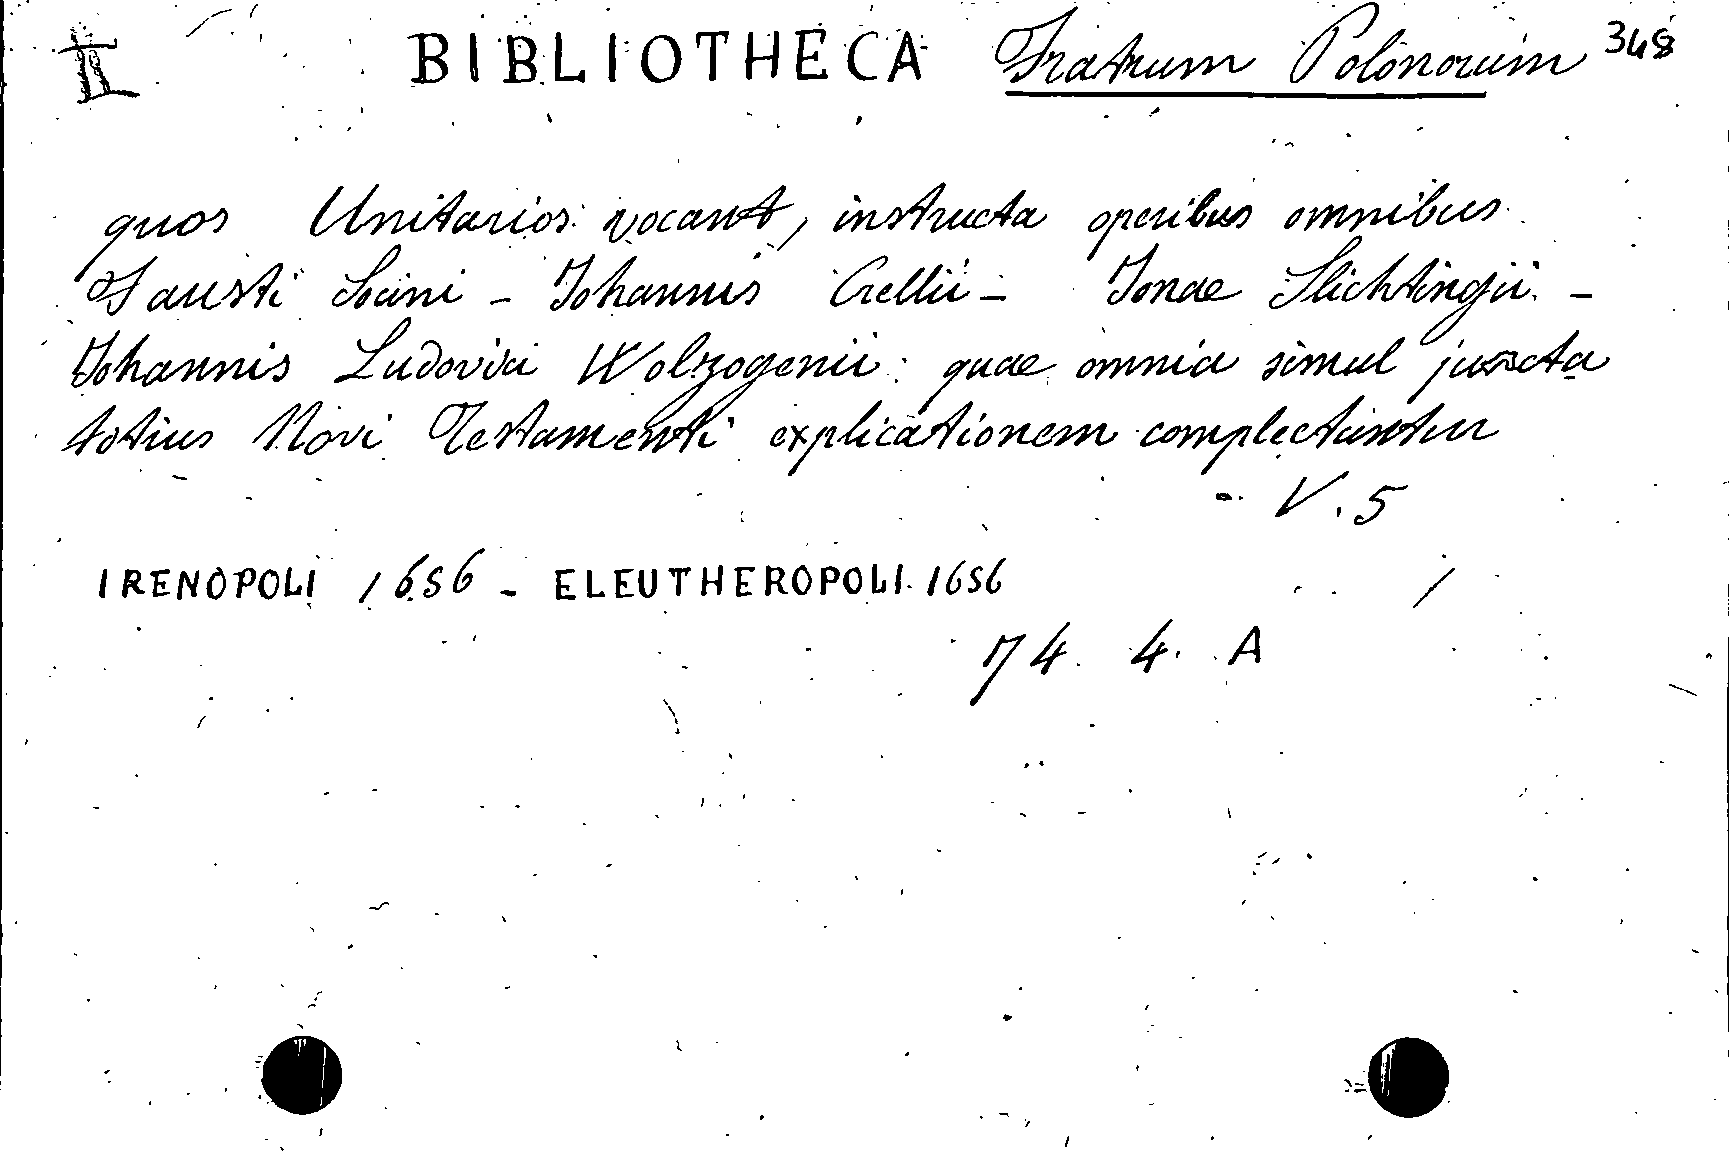 II BIBLIOTHECA Fratrum Polonorum 348
quos Unitarios vocant, instructa operibus omnibus
Fausti Socini - Johannis Crellii - Jonae Slichtingii -
Johannis Ludovici Wolzogenii: quae omnia simul juncta
totius Novi Testamenti explicationem complectuntur
- V. 5
IRENOPOLI 1656 - ELEUTHEROPOLI 1656 /
74. 4. A